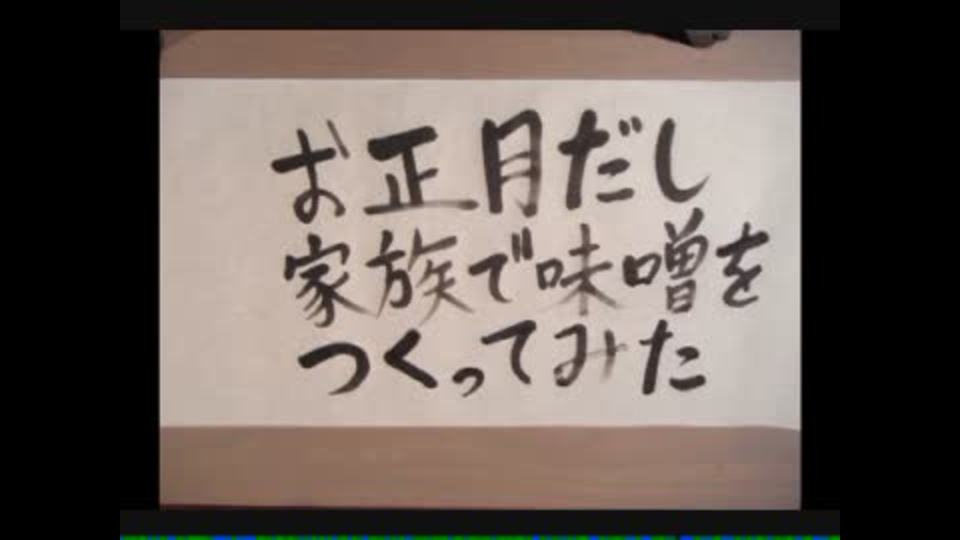 お正月だし
家族で味噌を
つくってみた